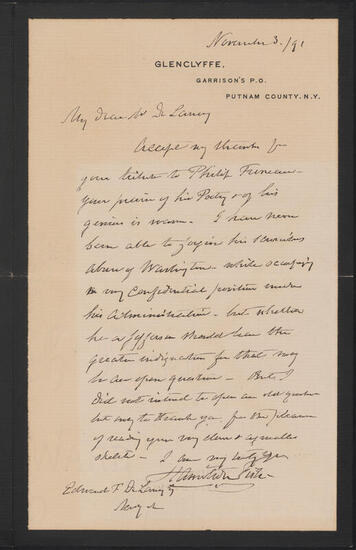 November 3./91
GLENCLYFFE,
GARRISON'S P.O.
PUTNAM COUNTY. N.Y.
My dear Mr De Lancey
Accept my thanks for
your tribute to Philip Freneau -
Your praise of his Poetry & of his
genius is warm. I have never
been able to forgive his scurrilous
abuse of Washington - while occupying
a confidential position under
his Administration - but whether
he or Jefferson should bear the
greater indignation for that may
be an open question - But I
did not intend to open an old question
but only to thank you for the pleasure
of reading your very clever & agreeable
sketch - I am very truly Yrs
Hamilton Fish
Edward F De Lancey